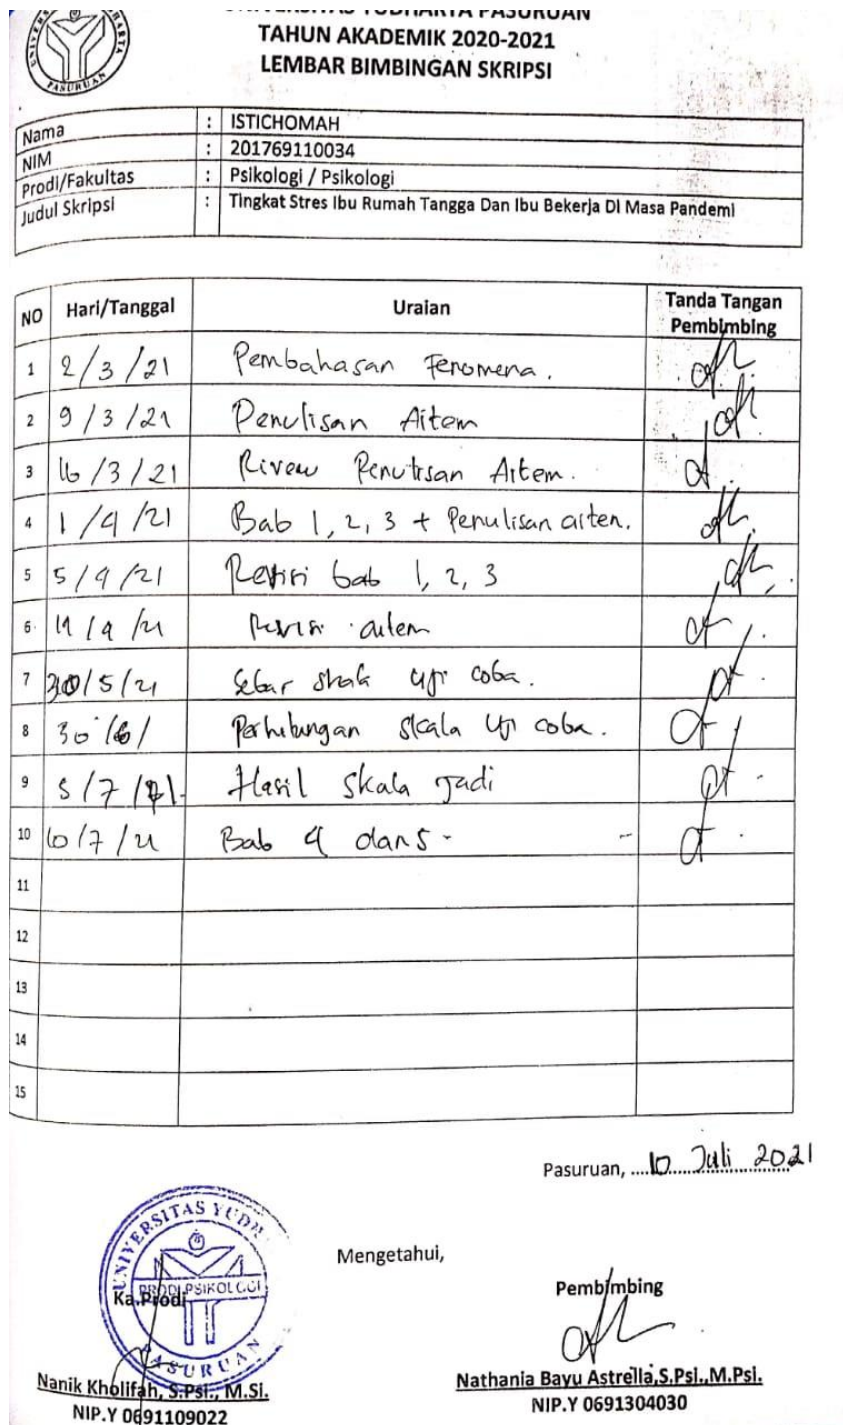 UNIVERSITAS YUDHARTA PASURUAN
TAHUN AKADEMIK 2020-2021
LEMBAR BIMBINGAN SKRIPSI
Nama : ISTICHOMAH
NIM : 201769110034
Prodi/Fakultas : Psikologi / Psikologi
Judul Skripsi : Tingkat Stres Ibu Rumah Tangga Dan Ibu Bekerja Di Masa Pandemi
NO Hari/Tanggal Uraian Tanda Tangan Pembimbing
1 2/3/21 Pembahasan Fenomena.
2 9/3/21 Penulisan Aitem
3 16/3/21 Rivew Penulisan Aitem.
4 1/4/21 Bab 1, 2, 3 + Penulisan aitem.
5 5/4/21 Revisi bab 1, 2, 3
6. Revisi aitem
7 30/5/21 Sebar skala uji coba.
8 30/6/ Perhitungan skala uji coba.
9 5/7/21. Hasil skala jadi
10 10/7/21 Bab 4 dan 5 -
11
12
13
14
15
Pasuruan, 10 Juli 2021
Mengetahui,
UNIVERSITAS YUDHARTA
PRODI PSIKOLOGI
PASURUAN
Ka.Prodi Pembimbing
Nanik Kholifah, S.Psi., M.Si. Nathania Bayu Astrella,S.Psi.,M.Psi.
NIP.Y 0691109022 NIP.Y 0691304030